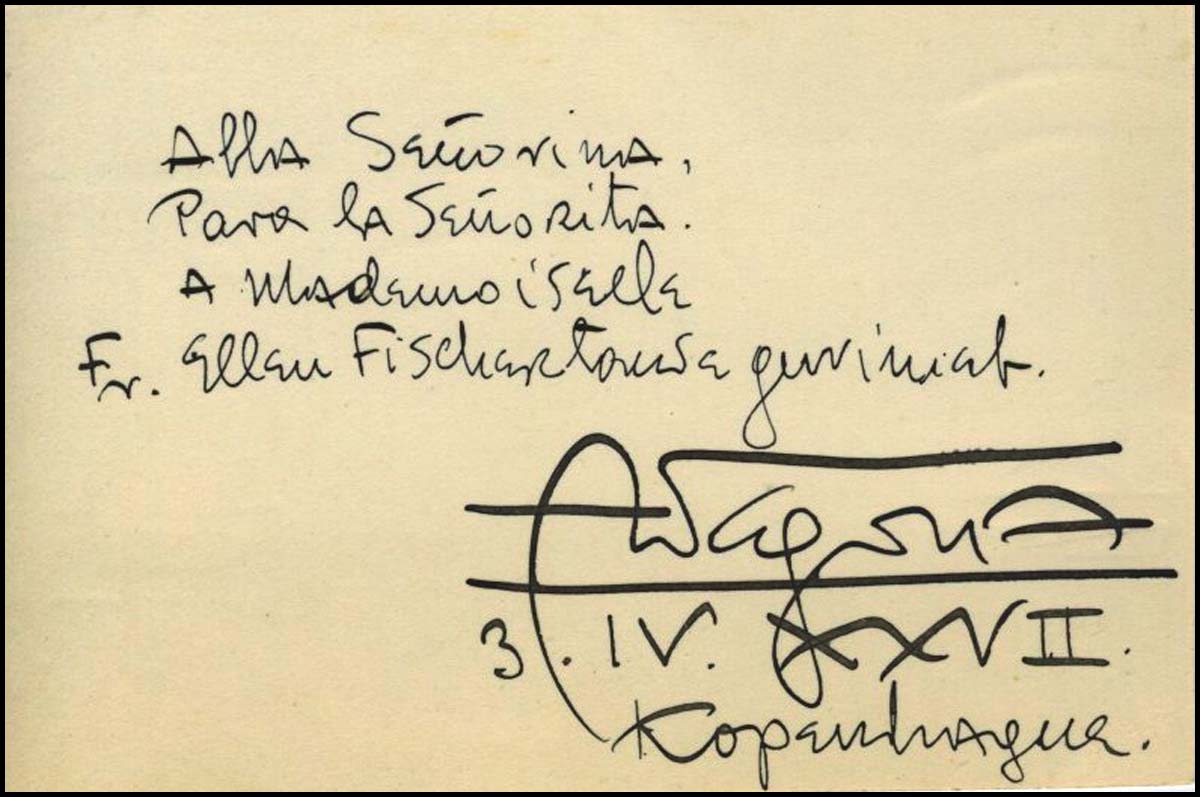 Alla Señorina,
Para la Señorita.
A Mademoiselle
Fr. Ellen
3. IV. XXVII.
Kopenhague.